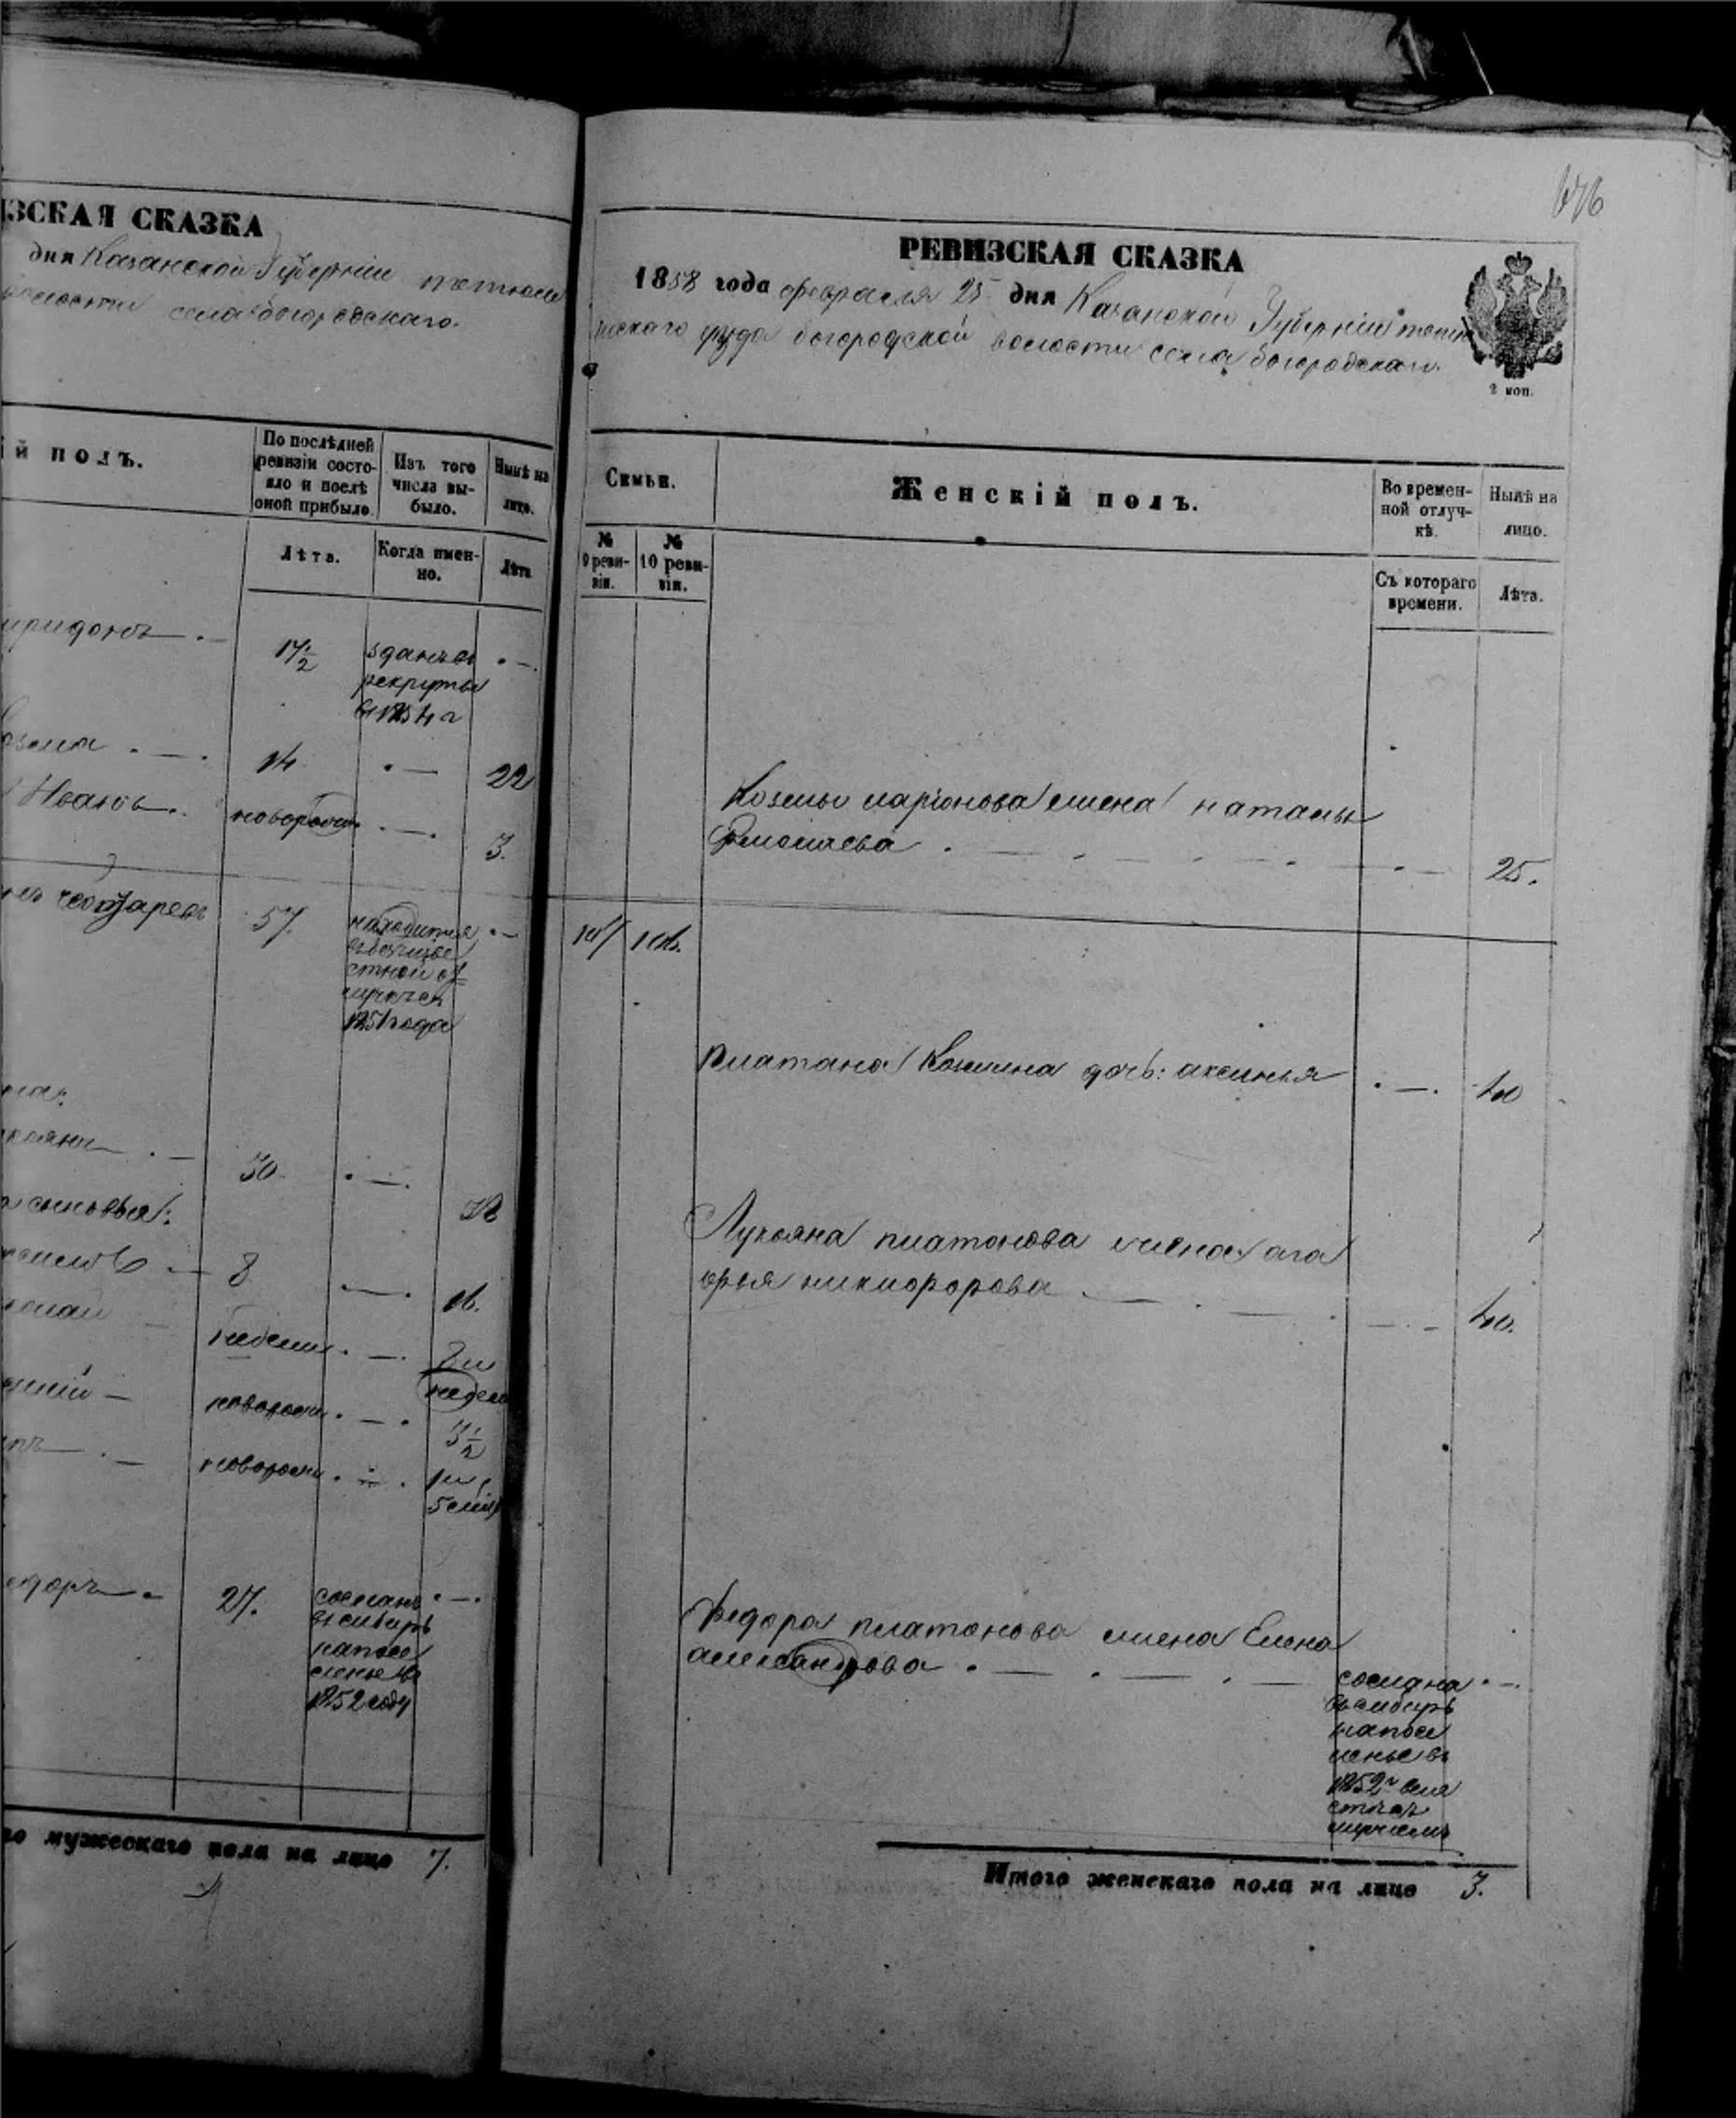 ИЗСКАЯ СКАЗКА
дня Казанской Губерніи тетюш
волости села богородскаго.
ій полъ.
По послѣдней ревизіи состояло и послѣ оной прибыло.
Изъ того числа выбыло.
Нынѣ на лицо.
Лѣта.
Когда именно.
Лѣта
иридонъ
17 1/2
зданъ въ
рекруты
въ 1854 г
озма
14
22
Иванъ
новорожн
3.
57.
находится
въ безъизве
стной от
лучке съ
1851 года
30.
38
сыновья:
8
16.
недели
новорожн
3 1/2
новорожн
едоръ
27.
сосланъ
въ сибирь
на посе
ленье въ
1852 году
го мужескаго пола на лицо 7.
676
РЕВИЗСКАЯ СКАЗКА
1858 года февраля 25 дня Казанской Губерніи тетю
шскаго уезда богородской волости села богородскаго.
2 коп.
Семьи.
Женскій полъ.
Во временной отлучкѣ.
Нынѣ на лицо.
№ 9 ревизіи.
№ 10 ревизіи.
Съ котораго времени.
Лѣта.
Козмы ларіонова жена наталья
25.
Платона Козмина дочь: аксинья
40
Лукояна платонова жена ага
фья никифорова
40.
Федора платонова жена Елена
александрова
сослана
въ сибирь
на посе
ленье въ
1852 г вме
сте съ
мужемъ
Итого женскаго пола на лицо 3.